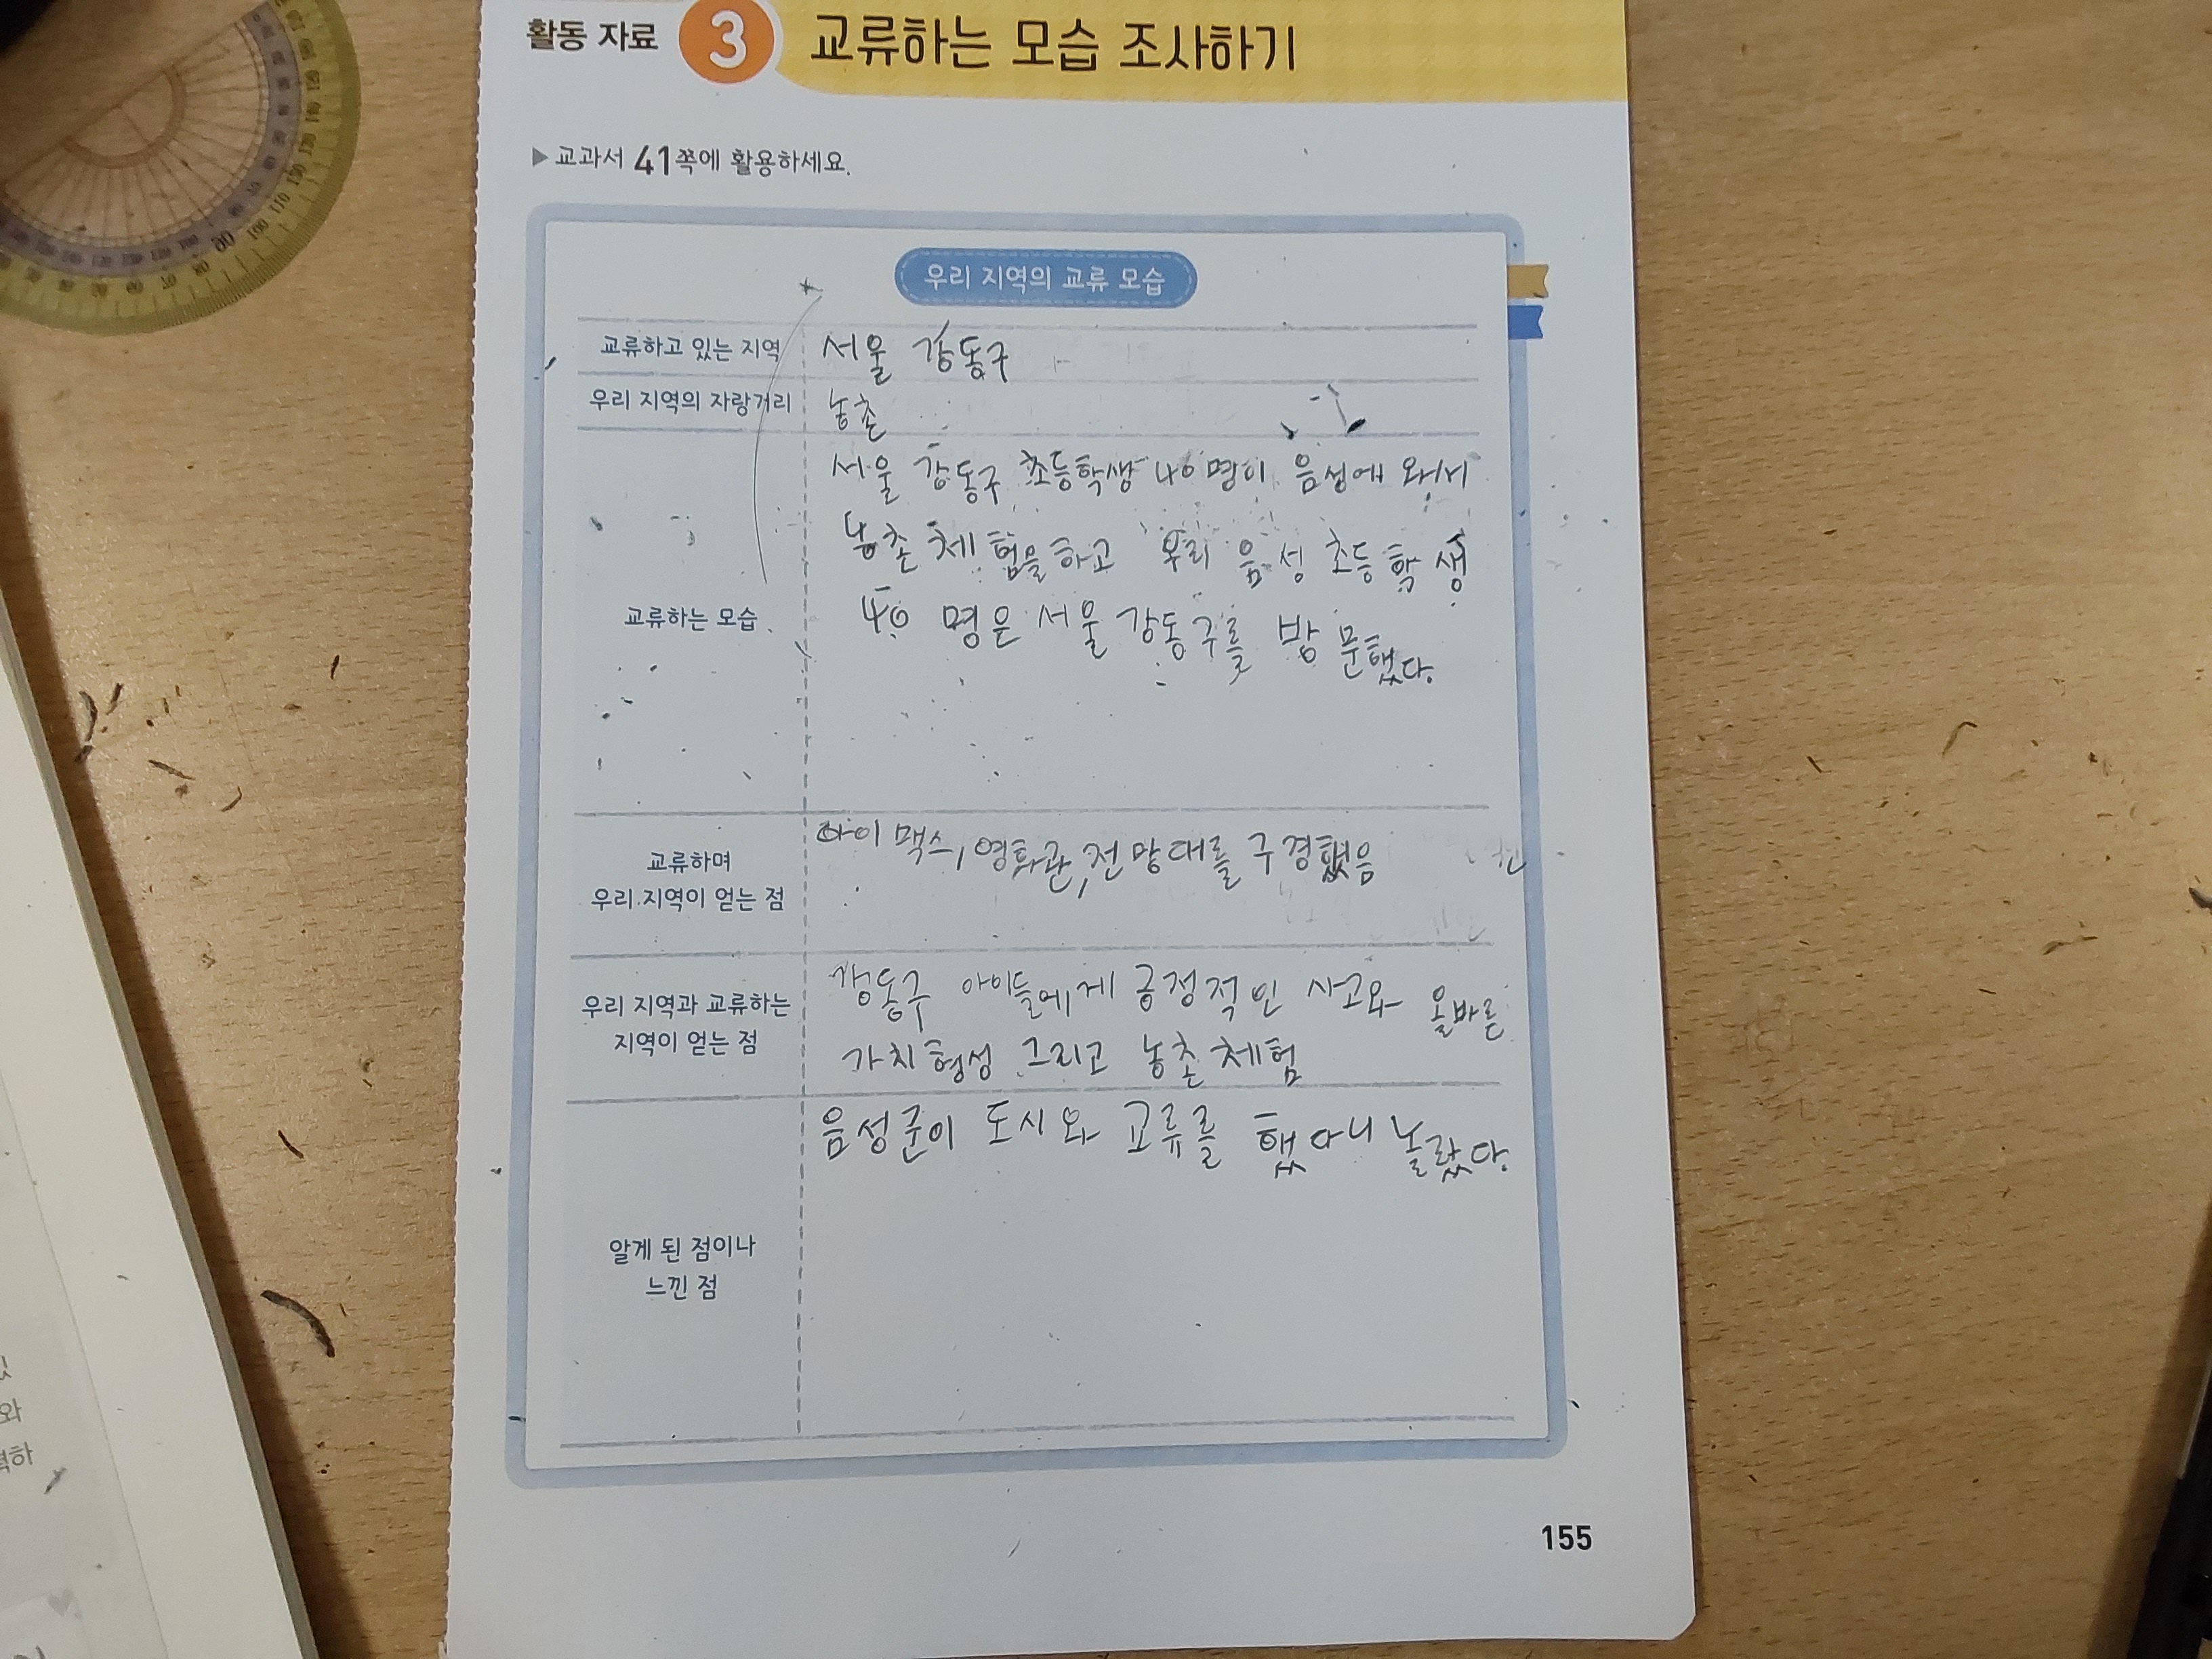 활동 자료 3 교류하는 모습 조사하기
▶교과서 41쪽에 활용하세요.
우리 지역의 교류 모습
교류하고 있는 지역 서울 강동구
우리 지역의 자랑거리 농촌
서울 강동구 초등학생 40명이 음성에 와서
농촌 체험을하고 우리 음성 초등학생
교류하는 모습 40 명은 서울 강동구를 방문했다.
아이맥스, 영화관, 전망대를 구경했음
교류하며
우리 지역이 얻는 점
강동구 아이들에게 긍정적인 사고와 올바른
우리 지역과 교류하는
가치형성 그리고 농촌체험
지역이 얻는 점
음성군이 도시와 교류를 했다니 놀랐다.
알게 된 점이나
느낀 점
155
와